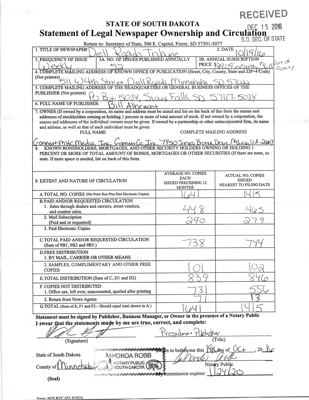 RECEIVED
DEC 15 2016
S.D. SEC. OF STATE
STATE OF SOUTH DAKOTA
Statement of Legal Newspaper Ownership and Circulation
Return to: Secretary of State, 500 E. Capitol, Pierre, SD 57501-5077
1. TITLE OF NEWSPAPER Dell Rapids Tribune
2. DATE 10/19/16
3. FREQUENCY OF ISSUE Weekly
3A. NO. OF ISSUES PUBLISHED ANNUALLY 52
3B. ANNUAL SUBSCRIPTION PRICE
4. COMPLETE MAILING ADDRESS OF KNOWN OFFICE OF PUBLICATION (Street, City, County, State and ZIP+4 Code) (Not printers)
5. COMPLETE MAILING ADDRESS OF THE HEADQUARTERS OR GENERAL BUSINESS OFFICES OF THE PUBLISHER (Not printers)
PO Box 5034, Sioux Falls, SD 57117-5034
6. FULL NAME OF PUBLISHER: Bill Albrecht
7. OWNER (If owned by a corporation, its name and address must be stated and list on the back of this form the names and addresses of stockholders owning or holding 1 percent or more of total amount of stock. If not owned by a corporation, the names and addresses of the individual owners must be given. If owned by a partnership or other unincorporated firm, its name and address, as well as that of each individual must be given.
FULL NAME
COMPLETE MAILING ADDRESS
8. KNOWN BONDHOLDERS, MORTGAGES, AND OTHER SECURITY HOLDERS OWNING OR HOLDING 1 PERCENT OR MORE OF TOTAL AMOUNT OF BONDS, MORTGAGES OR OTHER SECURITIES (If there are none, so state. If more space is needed, list on back of this form.
9. EXTENT AND NATURE OF CIRCULATION
AVERAGE NO. COPIES EACH ISSUED PRECEDING 12 MONTHS
ACTUAL NO. COPIES ISSUED NEAREST TO FILING DATE
A. TOTAL NO. COPIES (Net Press Run Plus Paid Electronic Copies) 1641 1415
B. PAID AND/OR REQUESTED CIRCULATION
1. Sales through dealers and carriers, street vendors, and counter sales. 448 465
2. Mail Subscription (Paid and or requested) 290 279
3. Paid Electronic Copies
C. TOTAL PAID AND/OR REQUESTED CIRCULATION (Sum of 9B1, 9B2 and 9B3.) 738 744
D. FREE DISTRIBUTION
1. BY MAIL, CARRIER OR OTHER MEANS
2. SAMPLES, COMPLIMENTARY AND OTHER FREE COPIES 101 102
E. TOTAL DISTRIBUTION (Sum of C, D1 and D2) 839 846
F. COPIES NOT DISTRIBUTED
1. Office use, left over, unaccounted, spoiled after printing 731 556
2. Return from News Agents 71 13
G. TOTAL (Sum of E, F1 and F2 - Should equal total shown in A.) 1641 1415
Statement must be signed by Publisher, Business Manager, or Owner in the presence of a Notary Public
I swear that the statements made by me are true, correct, and complete:
President - Publisher
(Signature)
(Title)
State of South Dakota
County of Minnehaha
(Seal)
RHONDA ROBB
NOTARY PUBLIC
SOUTH DAKOTA
Notary Public